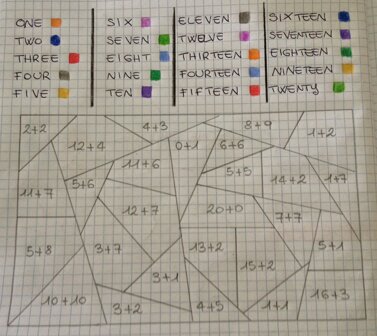 ONE SIX ELEVEN SIXTEEN
TWO SEVEN TWELVE SEVENTEEN
THREE EIGHT THIRTEEN EIGHTEEN
FOUR NINE FOURTEEN NINETEEN
FIVE TEN FIFTEEN TWENTY
2+2 4+3 8+9 1+2
12+4 0+1 6+6
11+6
5+6 5+5 14+2 1+7
11+7
12+7 20+0 7+7
5+8 3+7 13+2 5+1
15+2
3+1
10+10 3+2 4+5 1+1 16+3